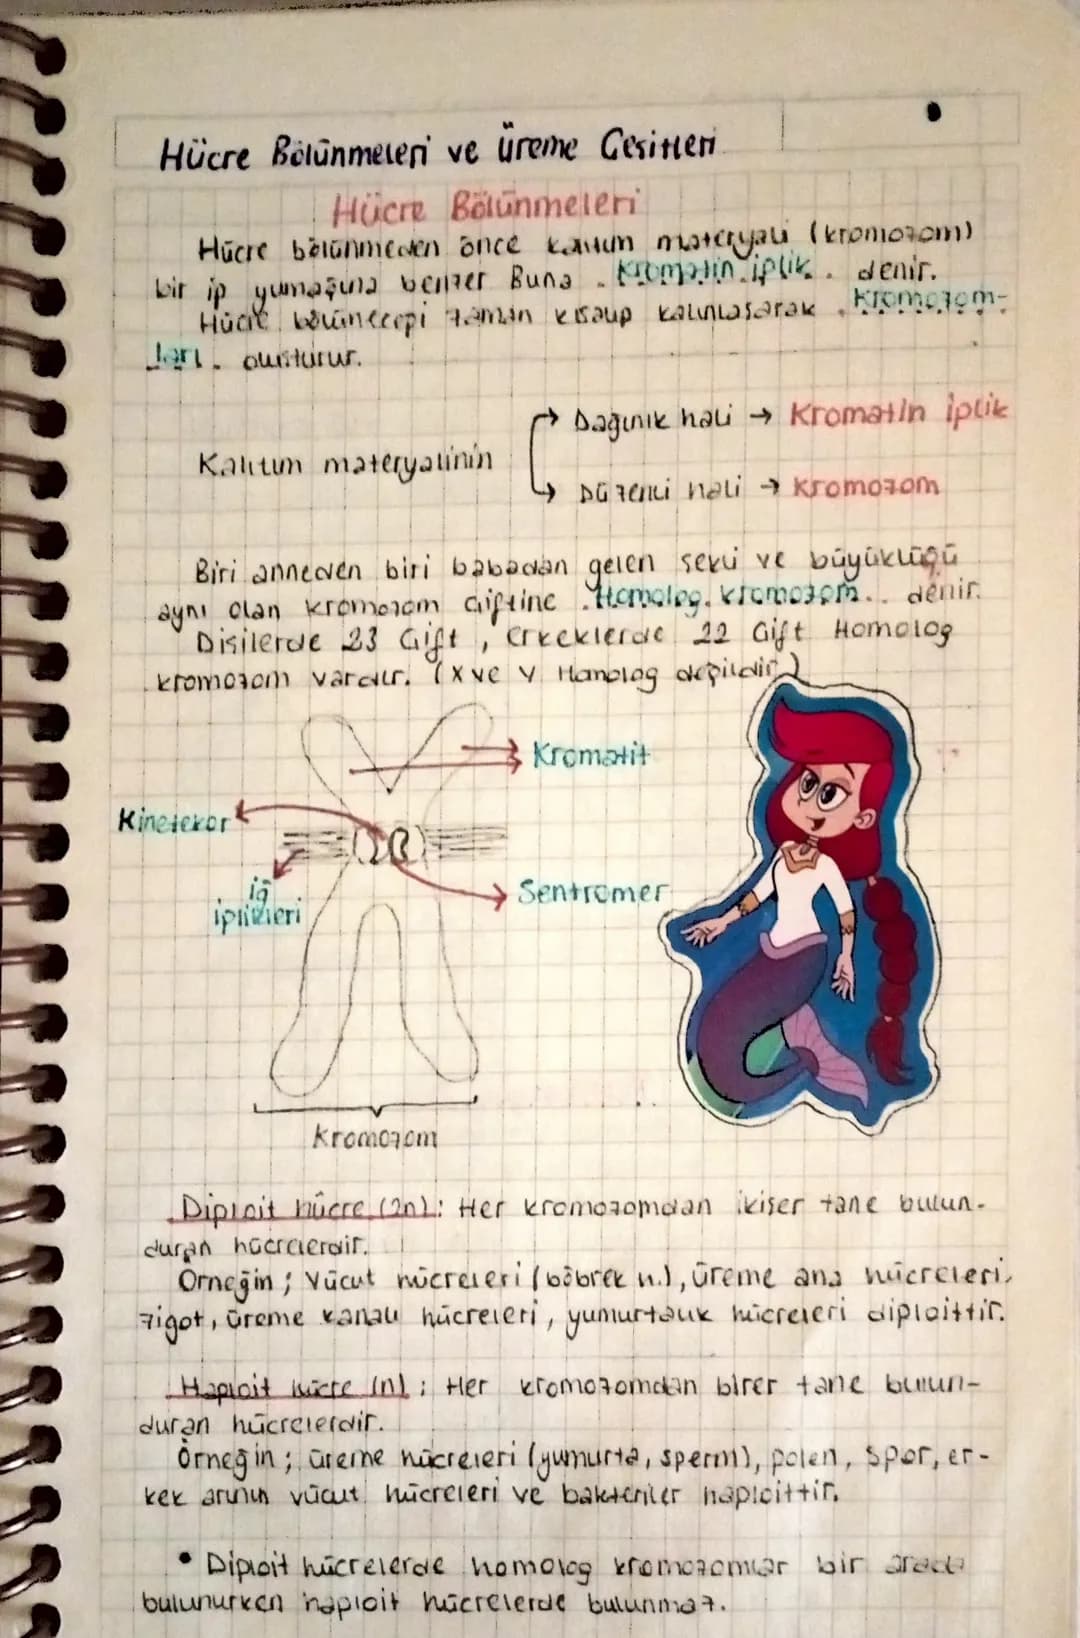 Hücre Bölünmeleri ve Üreme Çeşitleri
Hücre Bölünmeleri
Hücre bölünmeden önce kalıtım materyali (kromozom)
bir ip yumağına benzer Buna . Kromatin iplik . denir.
Hücre bölüneceği zaman kısalıp kalınlaşarak . Kromozom-
ları . oluşturur.
Dağınık hali → Kromatin iplik
Kalıtım materyalinin
Düzenli hali → Kromozom
Biri anneden biri babadan gelen şekli ve büyüklüğü
aynı olan kromozom çiftine . Homolog. kromozom.. denir.
Dişilerde 23 Çift , Erkeklerde 22 Çift Homolog
kromozom vardır. (X ve Y Homolog değildir.)
Kromatit
Kinetekor
iğ
iplikleri
Sentromer
Kromozom
Diploit hücre (2n): Her kromozomdan ikişer tane bulun-
duran hücrelerdir.
Örneğin ; Vücut hücreleri (böbrek h.), üreme ana hücreleri,
zigot, üreme kanalı hücreleri, yumurtalık hücreleri diploittir.
Haploit hücre (n) ; Her kromozomdan birer tane bulun-
duran hücrelerdir.
Örneğin ; üreme hücreleri (yumurta, sperm), polen, spor, er-
kek arının vücut hücreleri ve bakteriler haploittir.
• Diploit hücrelerde homolog kromozomlar bir arada
bulunurken haploit hücrelerde bulunmaz.